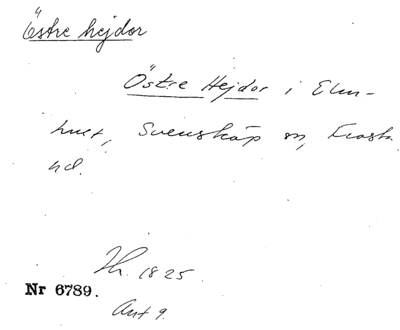 Östre hejdor
Östre Hejdor i Elm-
hult, Svensköp sn, Frosta
hd.
Th. 1825.
Nr 6789.
Avt 9.